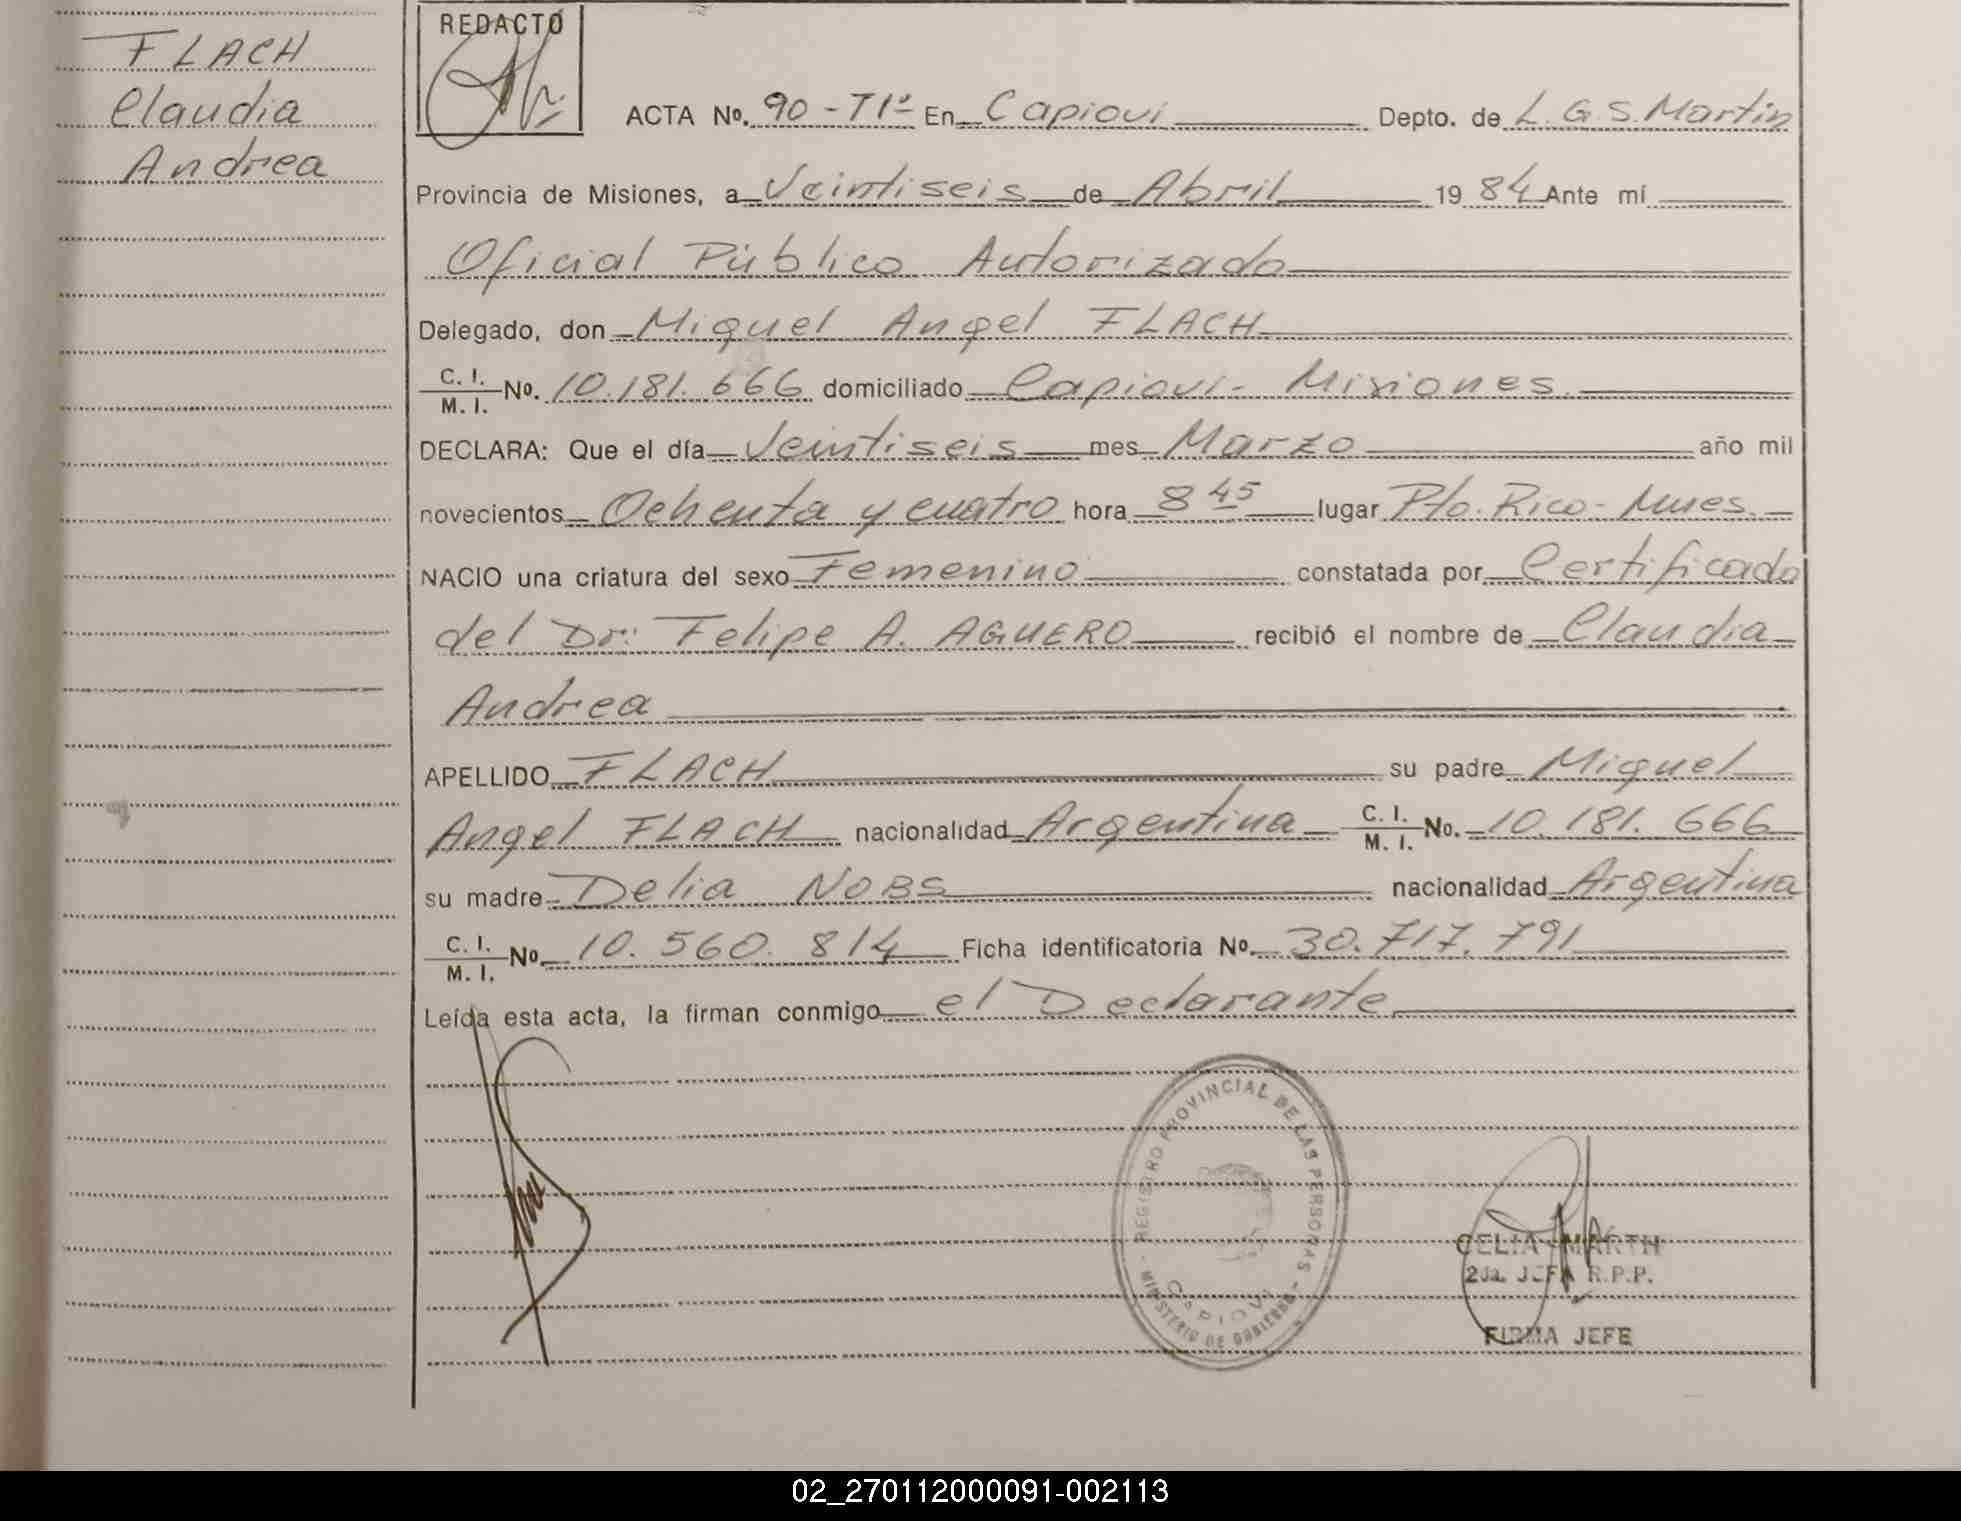 FLACH
Claudia
Andrea
REDACTÓ
ACTA No. 90 - T1º En Capiovi Depto. de L. G. S. Martin
Provincia de Misiones, a Veintiseis de Abril 19 84 Ante mí
Oficial Público Autorizado
Delegado, don Miguel Angel FLACH
C. I. M. I. No. 10.181.666 domiciliado Capiovi - Misiones.
DECLARA: Que el día Veintiseis mes Marzo año mil
novecientos Ochenta y cuatro hora 8 45 lugar Pto. Rico - Mnes.
NACIO una criatura del sexo Femenino constatada por Certificado
del Dr: Felipe A. AGUERO recibió el nombre de Claudia
Andrea
APELLIDO FLACH su padre Miguel
Angel FLACH nacionalidad Argentina C. I. M. I. No. 10.181.666
su madre Delia NOBS nacionalidad Argentina
C. I. M. I. No. 10.560.814 Ficha identificatoria No. 30.717.791
Leída esta acta, la firman conmigo el Declarante
REGISTRO PROVINCIAL DE LAS PERSONAS
CAPIOVI
MINISTERIO DE GOBIERNO
CELIA MARTH
2da. JEFA R.P.P.
FIRMA JEFE
02_270112000091-002113